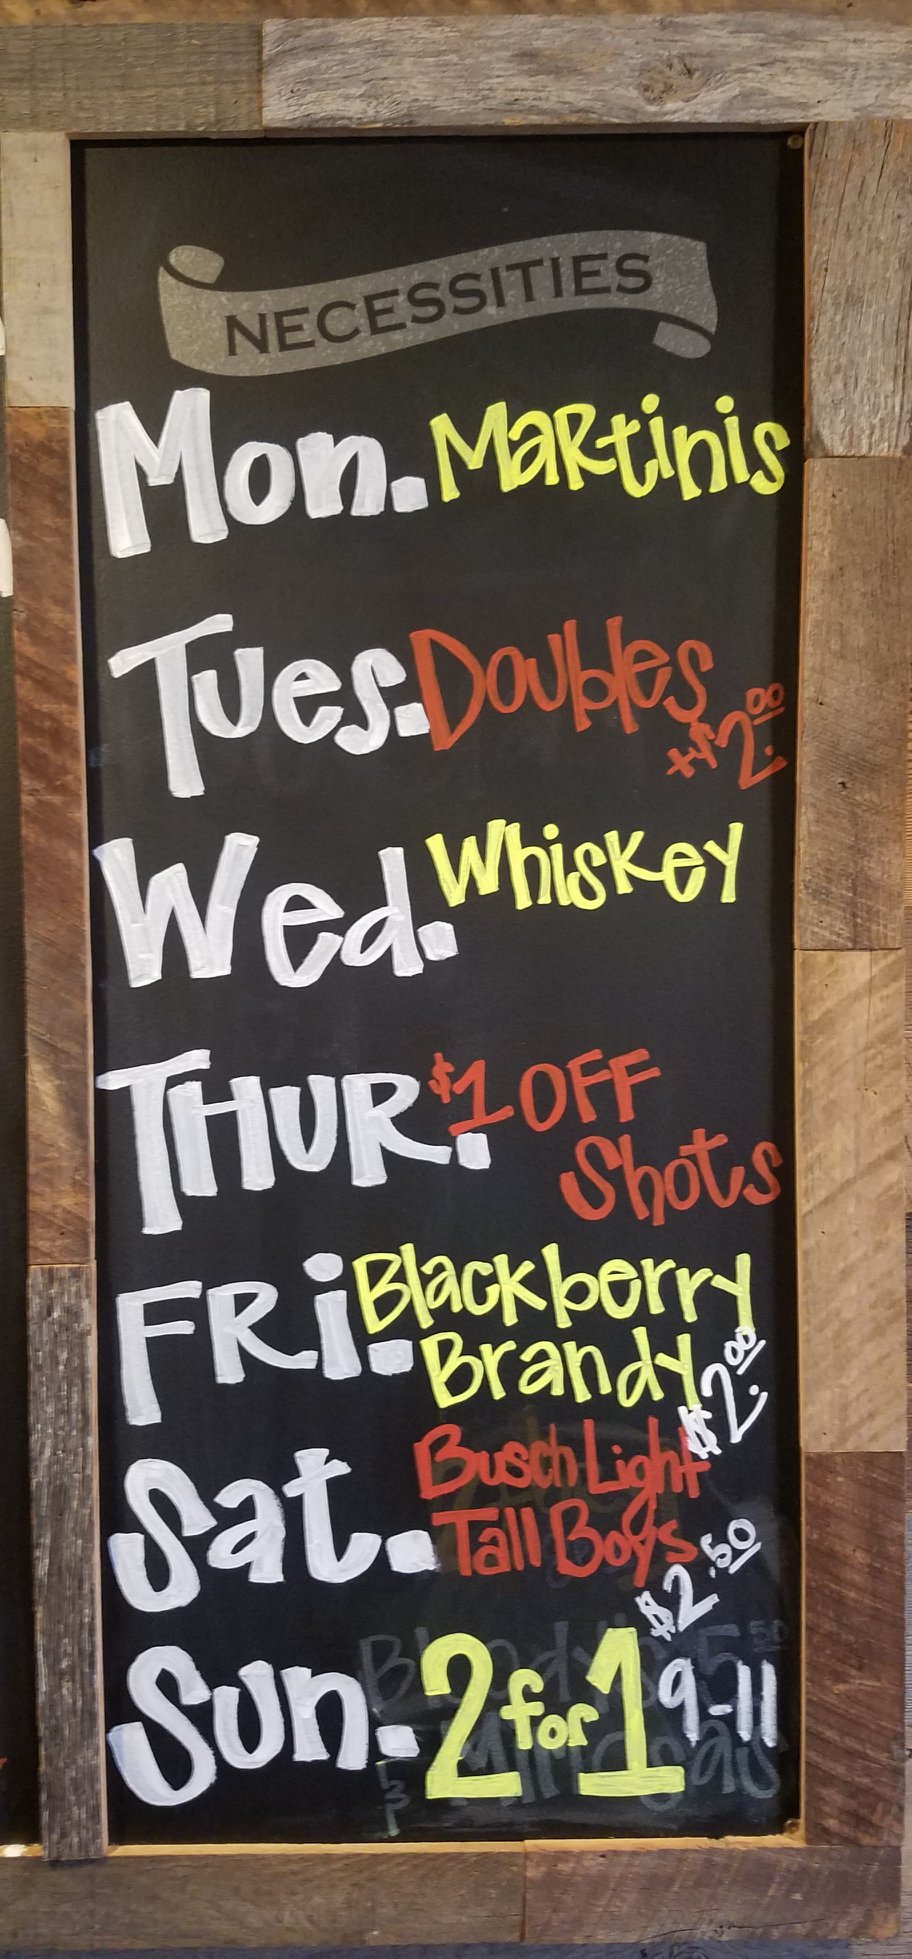 NECESSITIES
Mon. Martinis
Tues. Doubles
+$2.00
Wed. Whiskey
THUR. $1 OFF
Shots
FRi. Blackberry
Brandy $2.00
Sat. Busch Light
Tall Boys
$2.50
Sun. 2 for 1 9-11
Bloody's 5.50
Mimosas